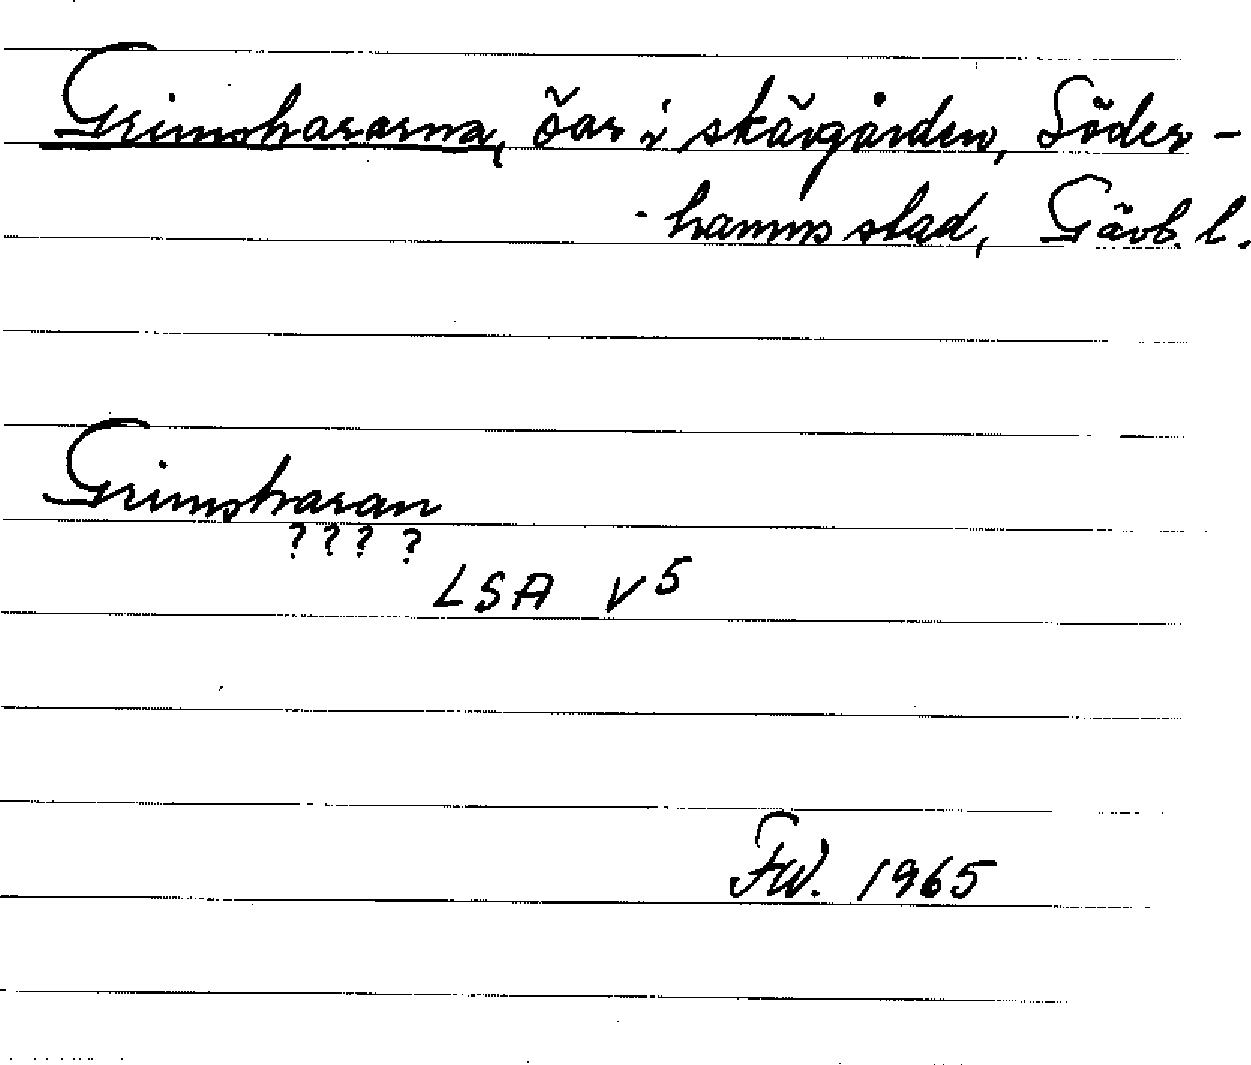 Grimshararna, öar i skärgården, Söder-
-hamns stad, Gävb. l.
Grimsharan
? ? ? ?
LSA V5
FW. 1965